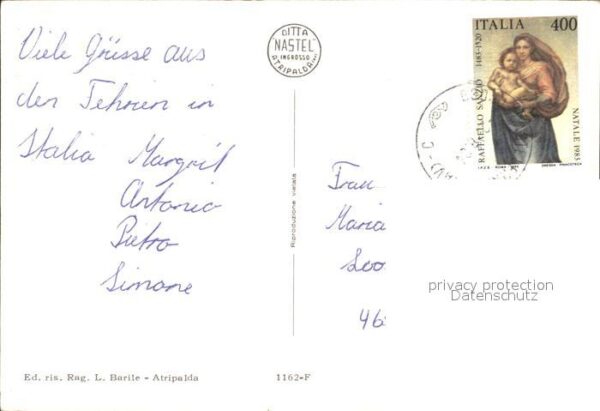 Viele Grüsse aus
den Fehrien in
Italia Margrit
Antonio
Pietro
Simone
DITTA
NASTEL
INGROSSO
ATRIPALDA
Riproduzione vietata
ITALIA 400
RAFFAELLO SANZIO 1483-1520
NATALE 1983
Frau
Maria
46
privacy protection
Datenschutz
Ed. ris. Rag. L. Barile - Atripalda
1162-F